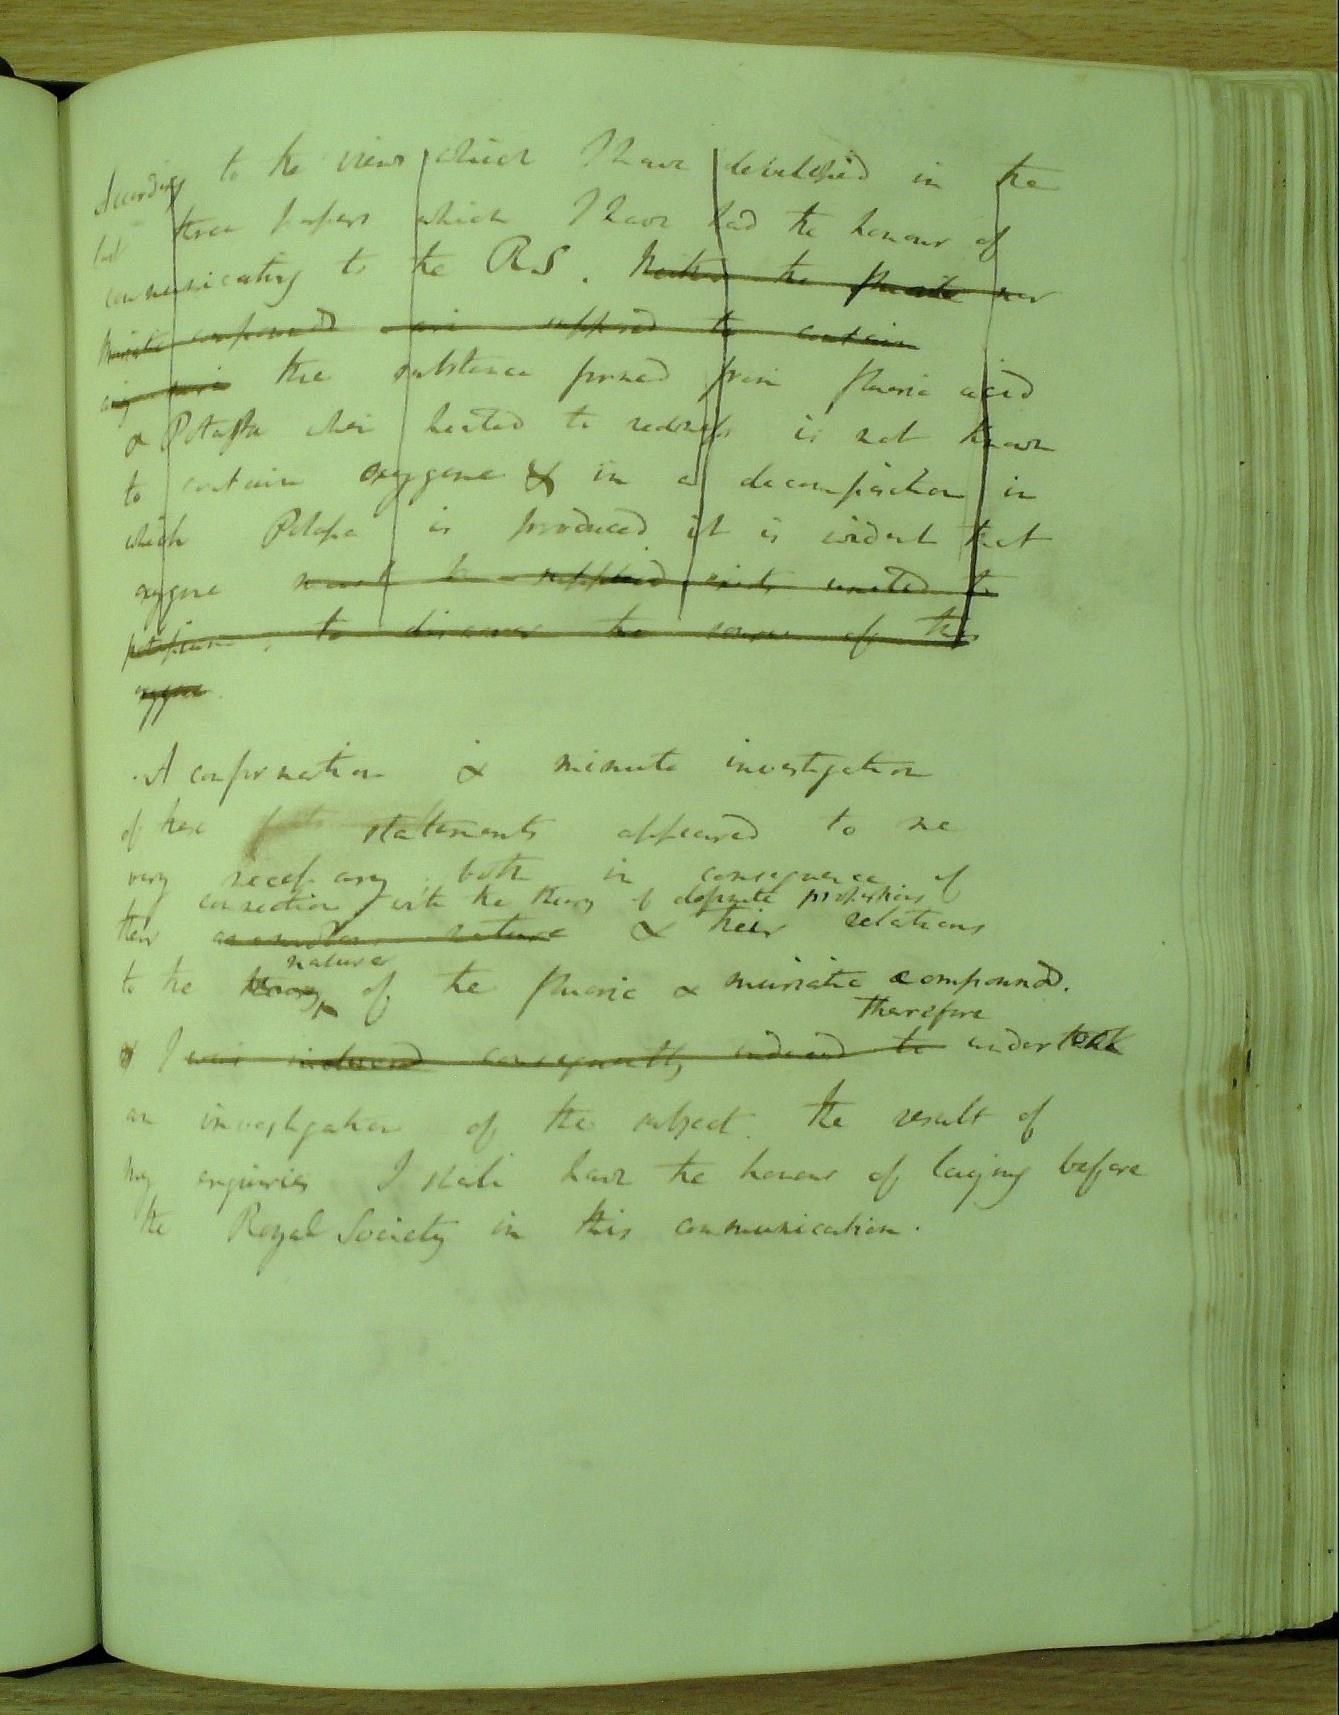 According to the views which I have developed in the
last three papers which I have had the honour of
communicating to the R.S. Neither the fluoric nor
muriatic compounds are supposed to contain
any the substance formed from fluoric acid
& Potassa when heated to redness is not known
to contain oxygene & in a decomposition in
which Potassa is produced it is evident that
oxygene must be supplied exists united to
potassium, to discover the source of this
oxygene.
A confirmation & minute investigation
of these facts statements appeared to me
very necessary both in consequence of
connection with the theory of definite proportions
their anomalous nature & their relations
nature
to the theory of the fluoric & muriatic compounds.
therefore
& I was induced consequently induced to undertook
an investigation of the subject. The result of
my enquiries I shall have the honour of laying before
the Royal Society in this communication.